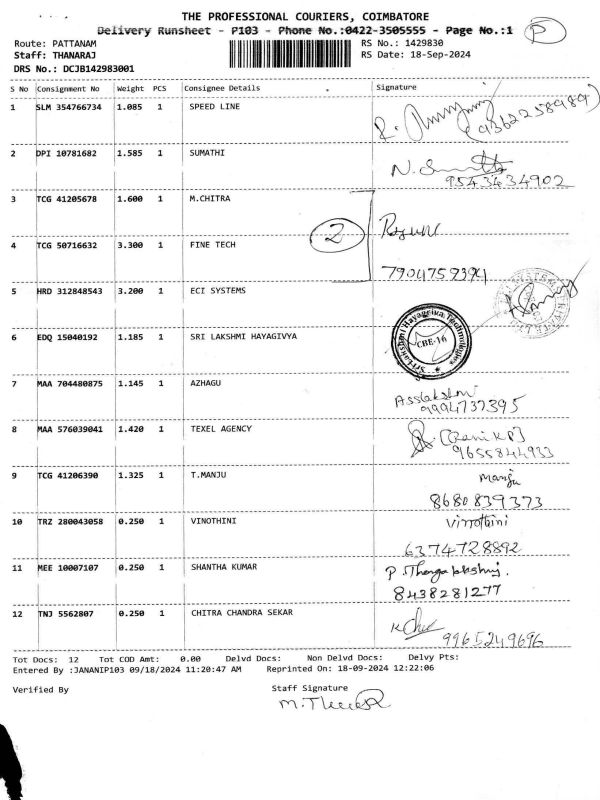 THE PROFESSIONAL COURIERS, COIMBATORE
Delivery Runsheet - P103 - Phone No.:0422-3505555 - Page No.:1 P
Route: PATTANAM RS No.: 1429830
Staff: THANARAJ RS Date: 18-Sep-2024
DRS No.: DCJB142983001
S No Consignment No Weight PCS Consignee Details Signature
1 SLM 354766734 1.085 1 SPEED LINE
(9362258989)
2 DPI 10781682 1.585 1 SUMATHI
9543434902
3 TCG 41205678 1.600 1 M.CHITRA
2
4 TCG 50716632 3.300 1 FINE TECH
7904759394
5 HRD 312848543 3.200 1 ECI SYSTEMS
6 EDQ 15040192 1.185 1 SRI LAKSHMI HAYAGIVYA
Sri Lakshmi Hayagriva Technologies
CBE-16
7 MAA 704480875 1.145 1 AZHAGU
9994737395
8 MAA 576039041 1.420 1 TEXEL AGENCY
9655844933
9 TCG 41206390 1.325 1 T.MANJU Manju
8680839373
10 TRZ 280043058 0.250 1 VINOTHINI Vinothini
6374728892
11 MEE 10007107 0.250 1 SHANTHA KUMAR
8438281277
12 TNJ 5562807 0.250 1 CHITRA CHANDRA SEKAR
9965249696
Tot Docs: 12 Tot COD Amt: 0.00 Delvd Docs: Non Delvd Docs: Delvy Pts:
Entered By :JANANIP103 09/18/2024 11:20:47 AM Reprinted On: 18-09-2024 12:22:06
Verified By Staff Signature